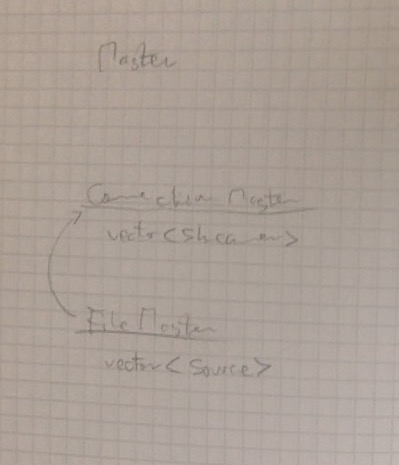 Master
Connection Master
vector<Stream>
File Master
vector<Source>